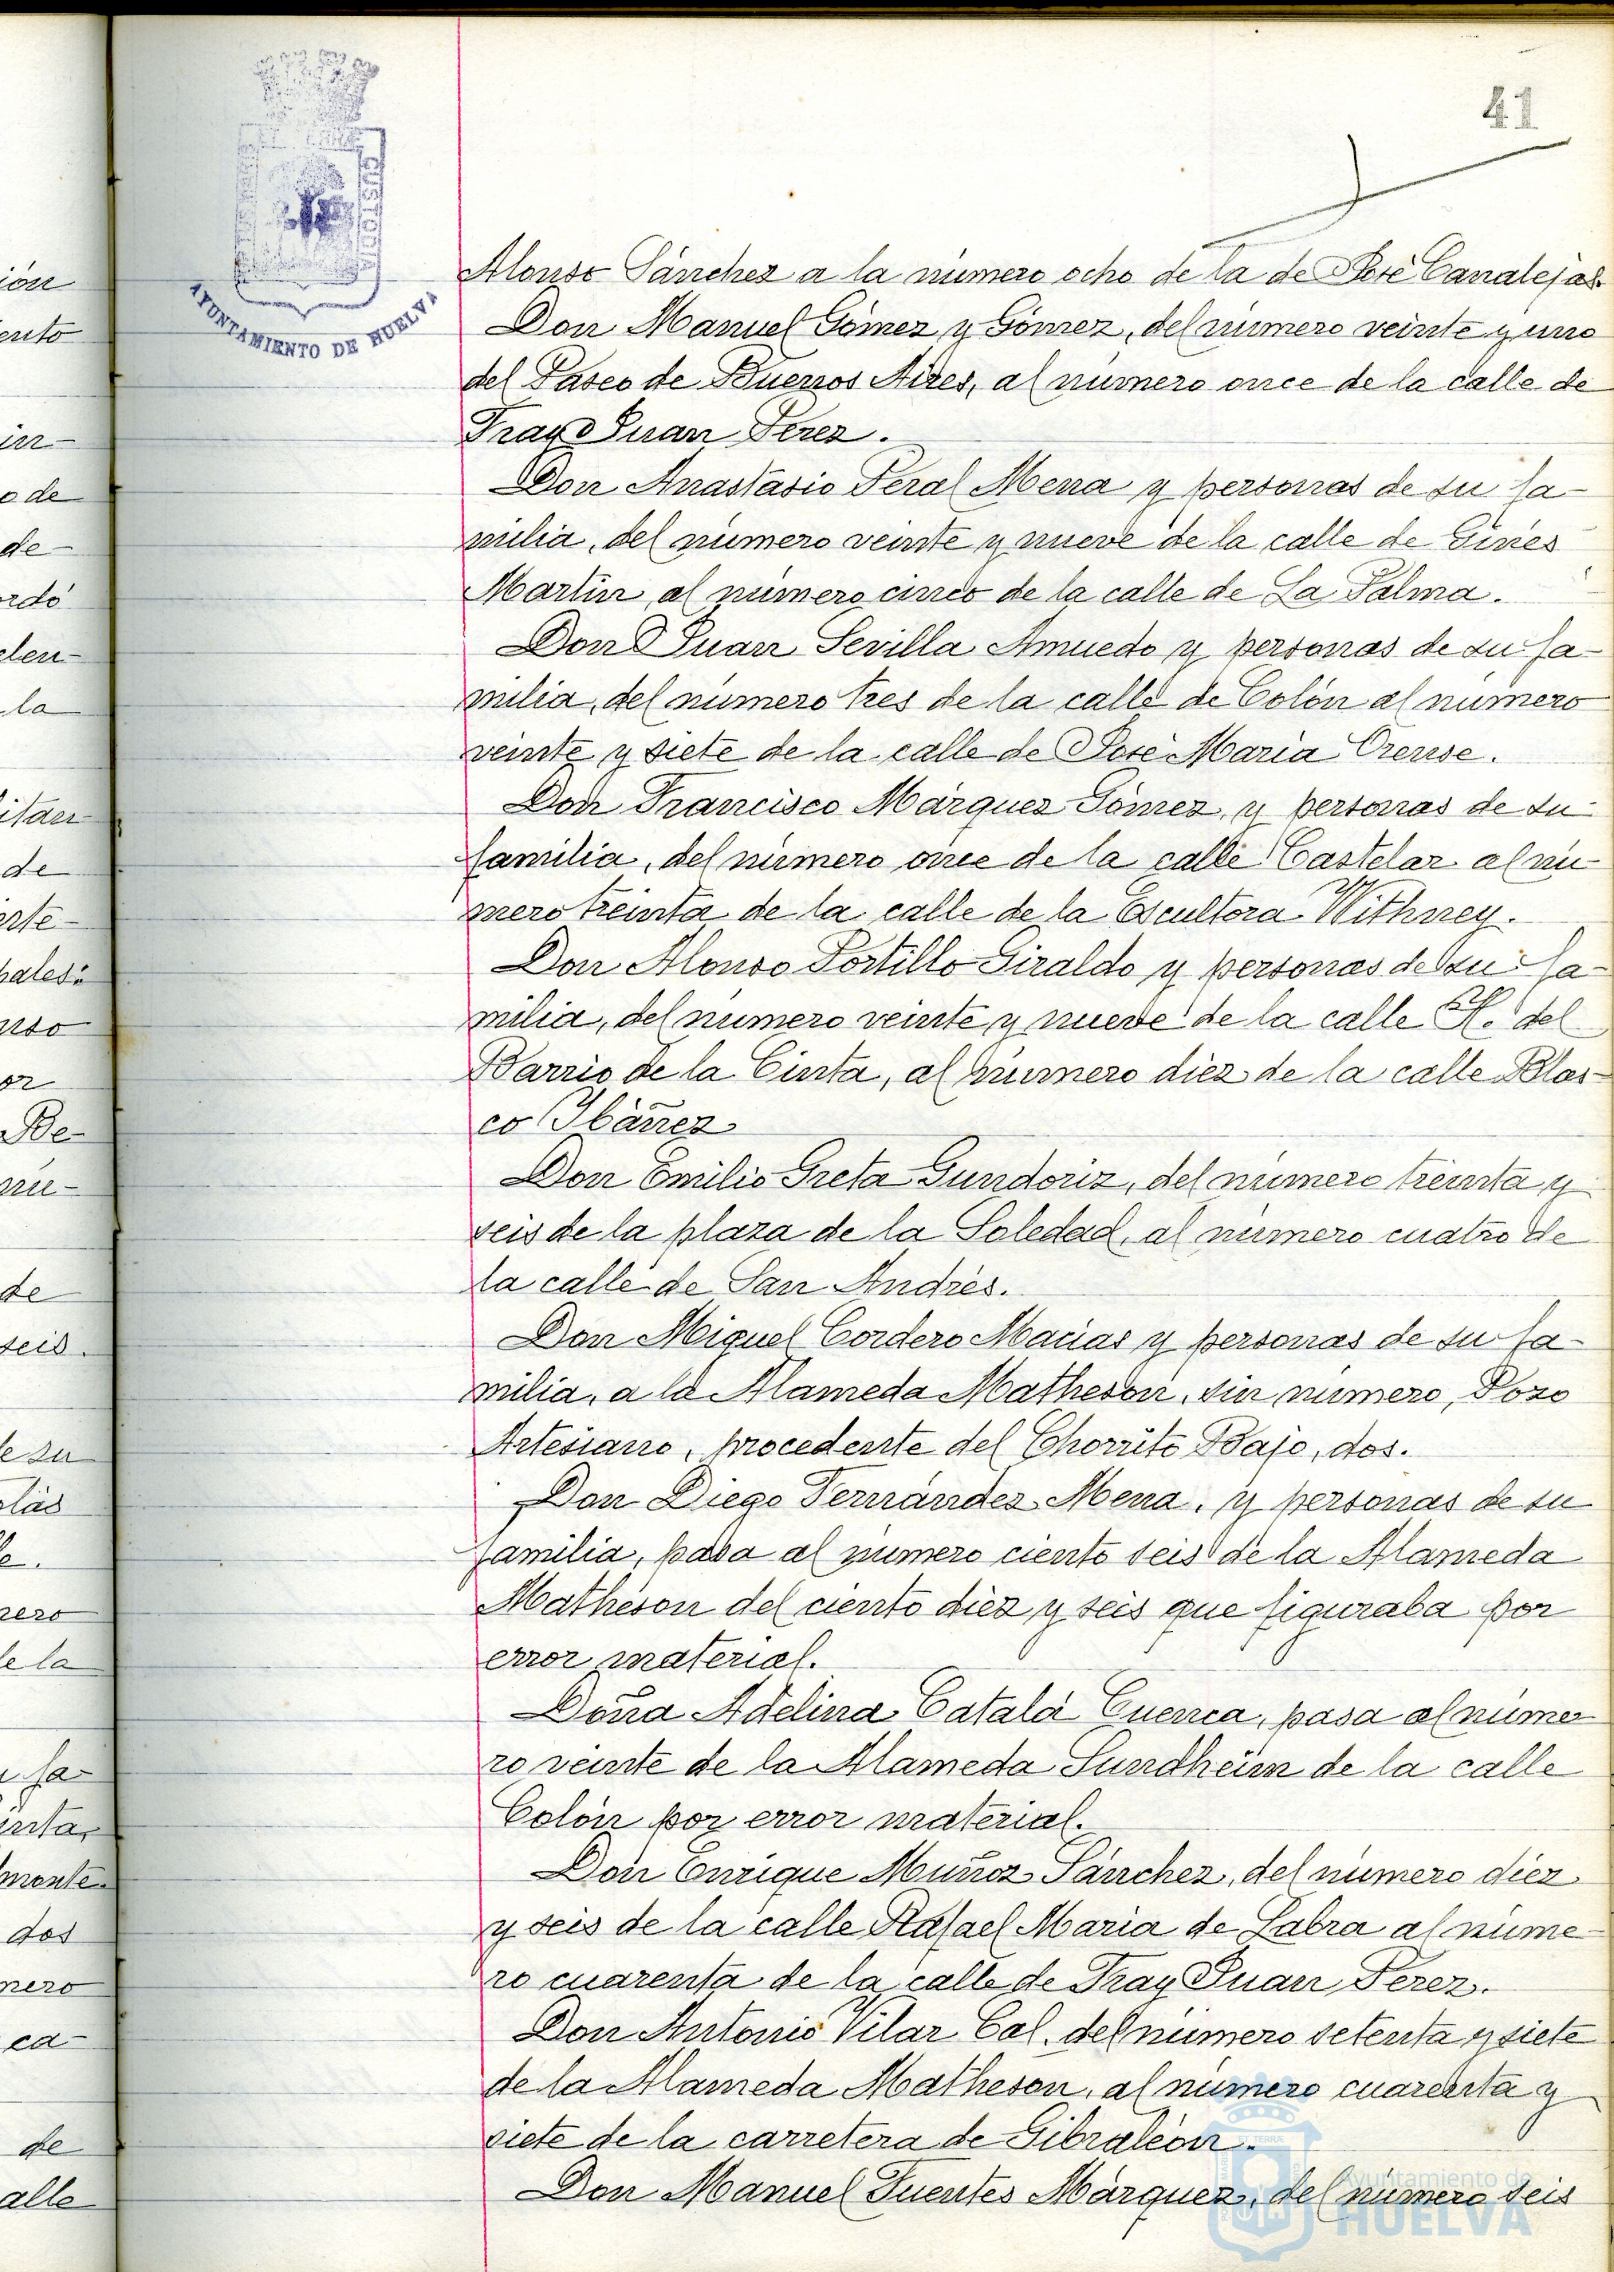 41
AYUNTAMIENTO DE HUELVA
Alonso Sánchez a la número ocho de la de José Canalejas.
Don Manuel Gómez y Gómez, del número veinte y uno
del Paseo de Buenos Aires, al número once de la calle de
Fray Juan Perez.
Don Anastasio Peral Mena y personas de su fa-
milia, del número veinte y nueve de la calle de Ginés
Martín, al número cinco de la calle de La Palma.
Don Juan Sevilla Amuedo y personas de su fa-
milia, del número tres de la calle de Colón al número
veinte y siete de la calle de José María Orense.
Don Francisco Márquez Gómez, y personas de su
familia, del número once de la calle Castelar al nú-
mero treinta de la calle de la Escultora Withney.
Don Alonso Portillo Giraldo y personas de su fa-
milia, del número veinte y nueve de la calle H. del
Barrio de la Cinta, al número diez de la calle Blas-
co Ibáñez
Don Emilio Greta Gundoriz, del número treinta y
seis de la plaza de la Soledad, al número cuatro de
la calle de San Andrés.
Don Miguel Cordero Macías y personas de su fa-
milia, a la Alameda Matheson, sin número, Pozo
Artesiano, procedente del Chorrito Bajo, dos.
Don Diego Fernández Mena, y personas de su
familia, pasa al número ciento seis de la Alameda
Matheson del ciento diez y seis que figuraba por
error material.
Doña Adelina Catalá Cuenca, pasa al núme-
ro veinte de la Alameda Sundheim de la calle
Colón por error material.
Don Enrique Muñoz Sánchez, del número diez
y seis de la calle Rafael María de Labra al núme-
ro cuarenta de la calle de Fray Juan Perez.
Don Antonio Vilar Cal, del número setenta y siete
de la Alameda Matheson, al número cuarenta y
siete de la carretera de Gibraleón.
Don Manuel Fuentes Márquez, del número seis
Ayuntamiento de
HUELVA